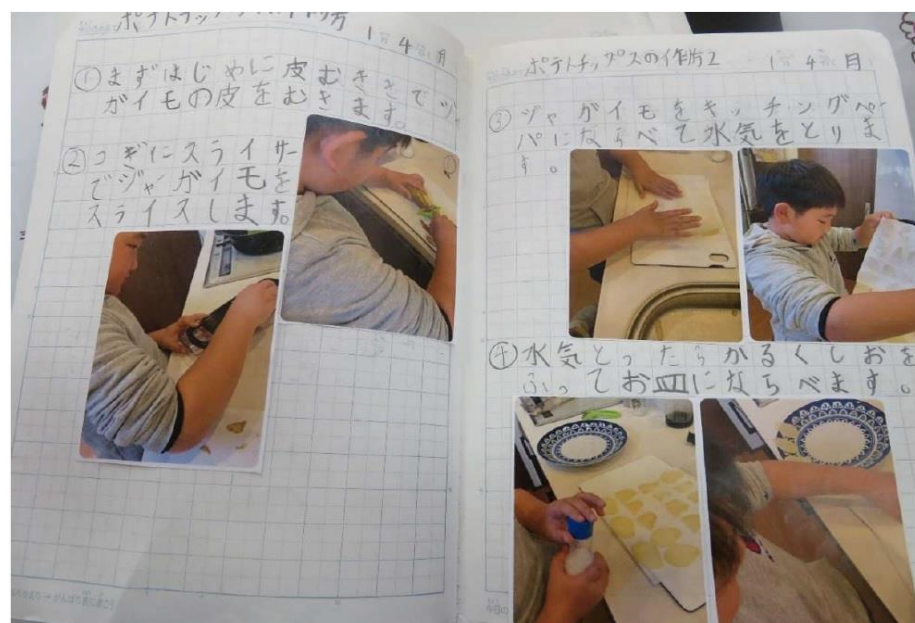 ポテトチップスの作り方
1 4 月
①まずはじめに皮むききでジャ
ガイモの皮をむきます。
②つぎにスライサー
でジャーガイモを
スライスします。
ポテトチップスの作り方2
1 4 月
③ジャガイモをキッチングペー
パにならべて水気をとりま
す。
④水気とったらかるくしおを
ふってお皿にならべます。